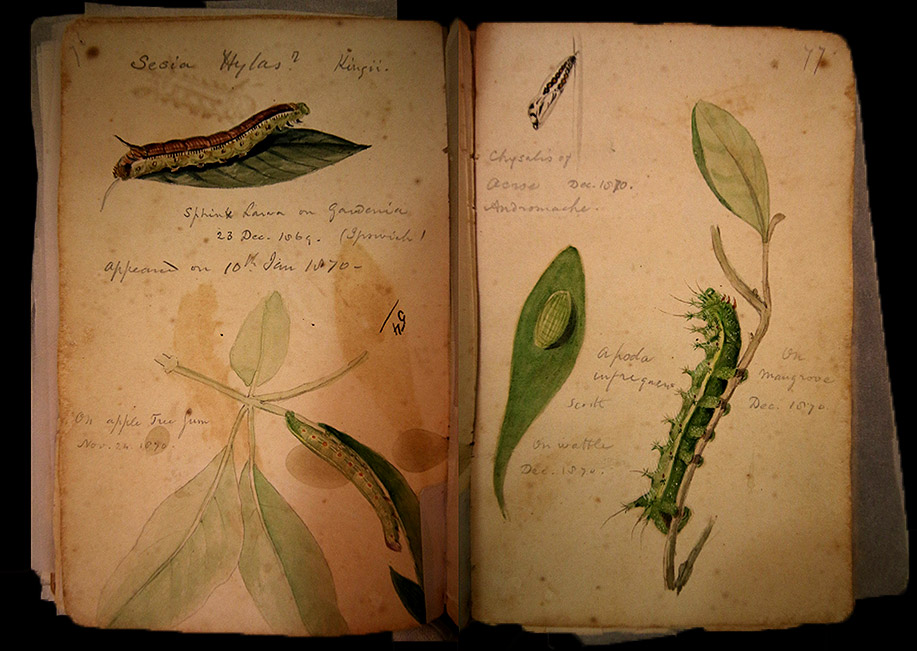 Sesia Hylas? Kingii.
Sphinx Larva on Gardenia
23 Dec. 1869. (Ipswich)
appeared on 10th Jan 1870 -
54
On apple Tree Gum
Nov. 24 1870.
77
Chysalis of
Acrae Dec. 1870.
Andromache.
Apoda
infrequens
Scott
On wattle
Dec. 1870.
On
Mangrove
Dec. 1870